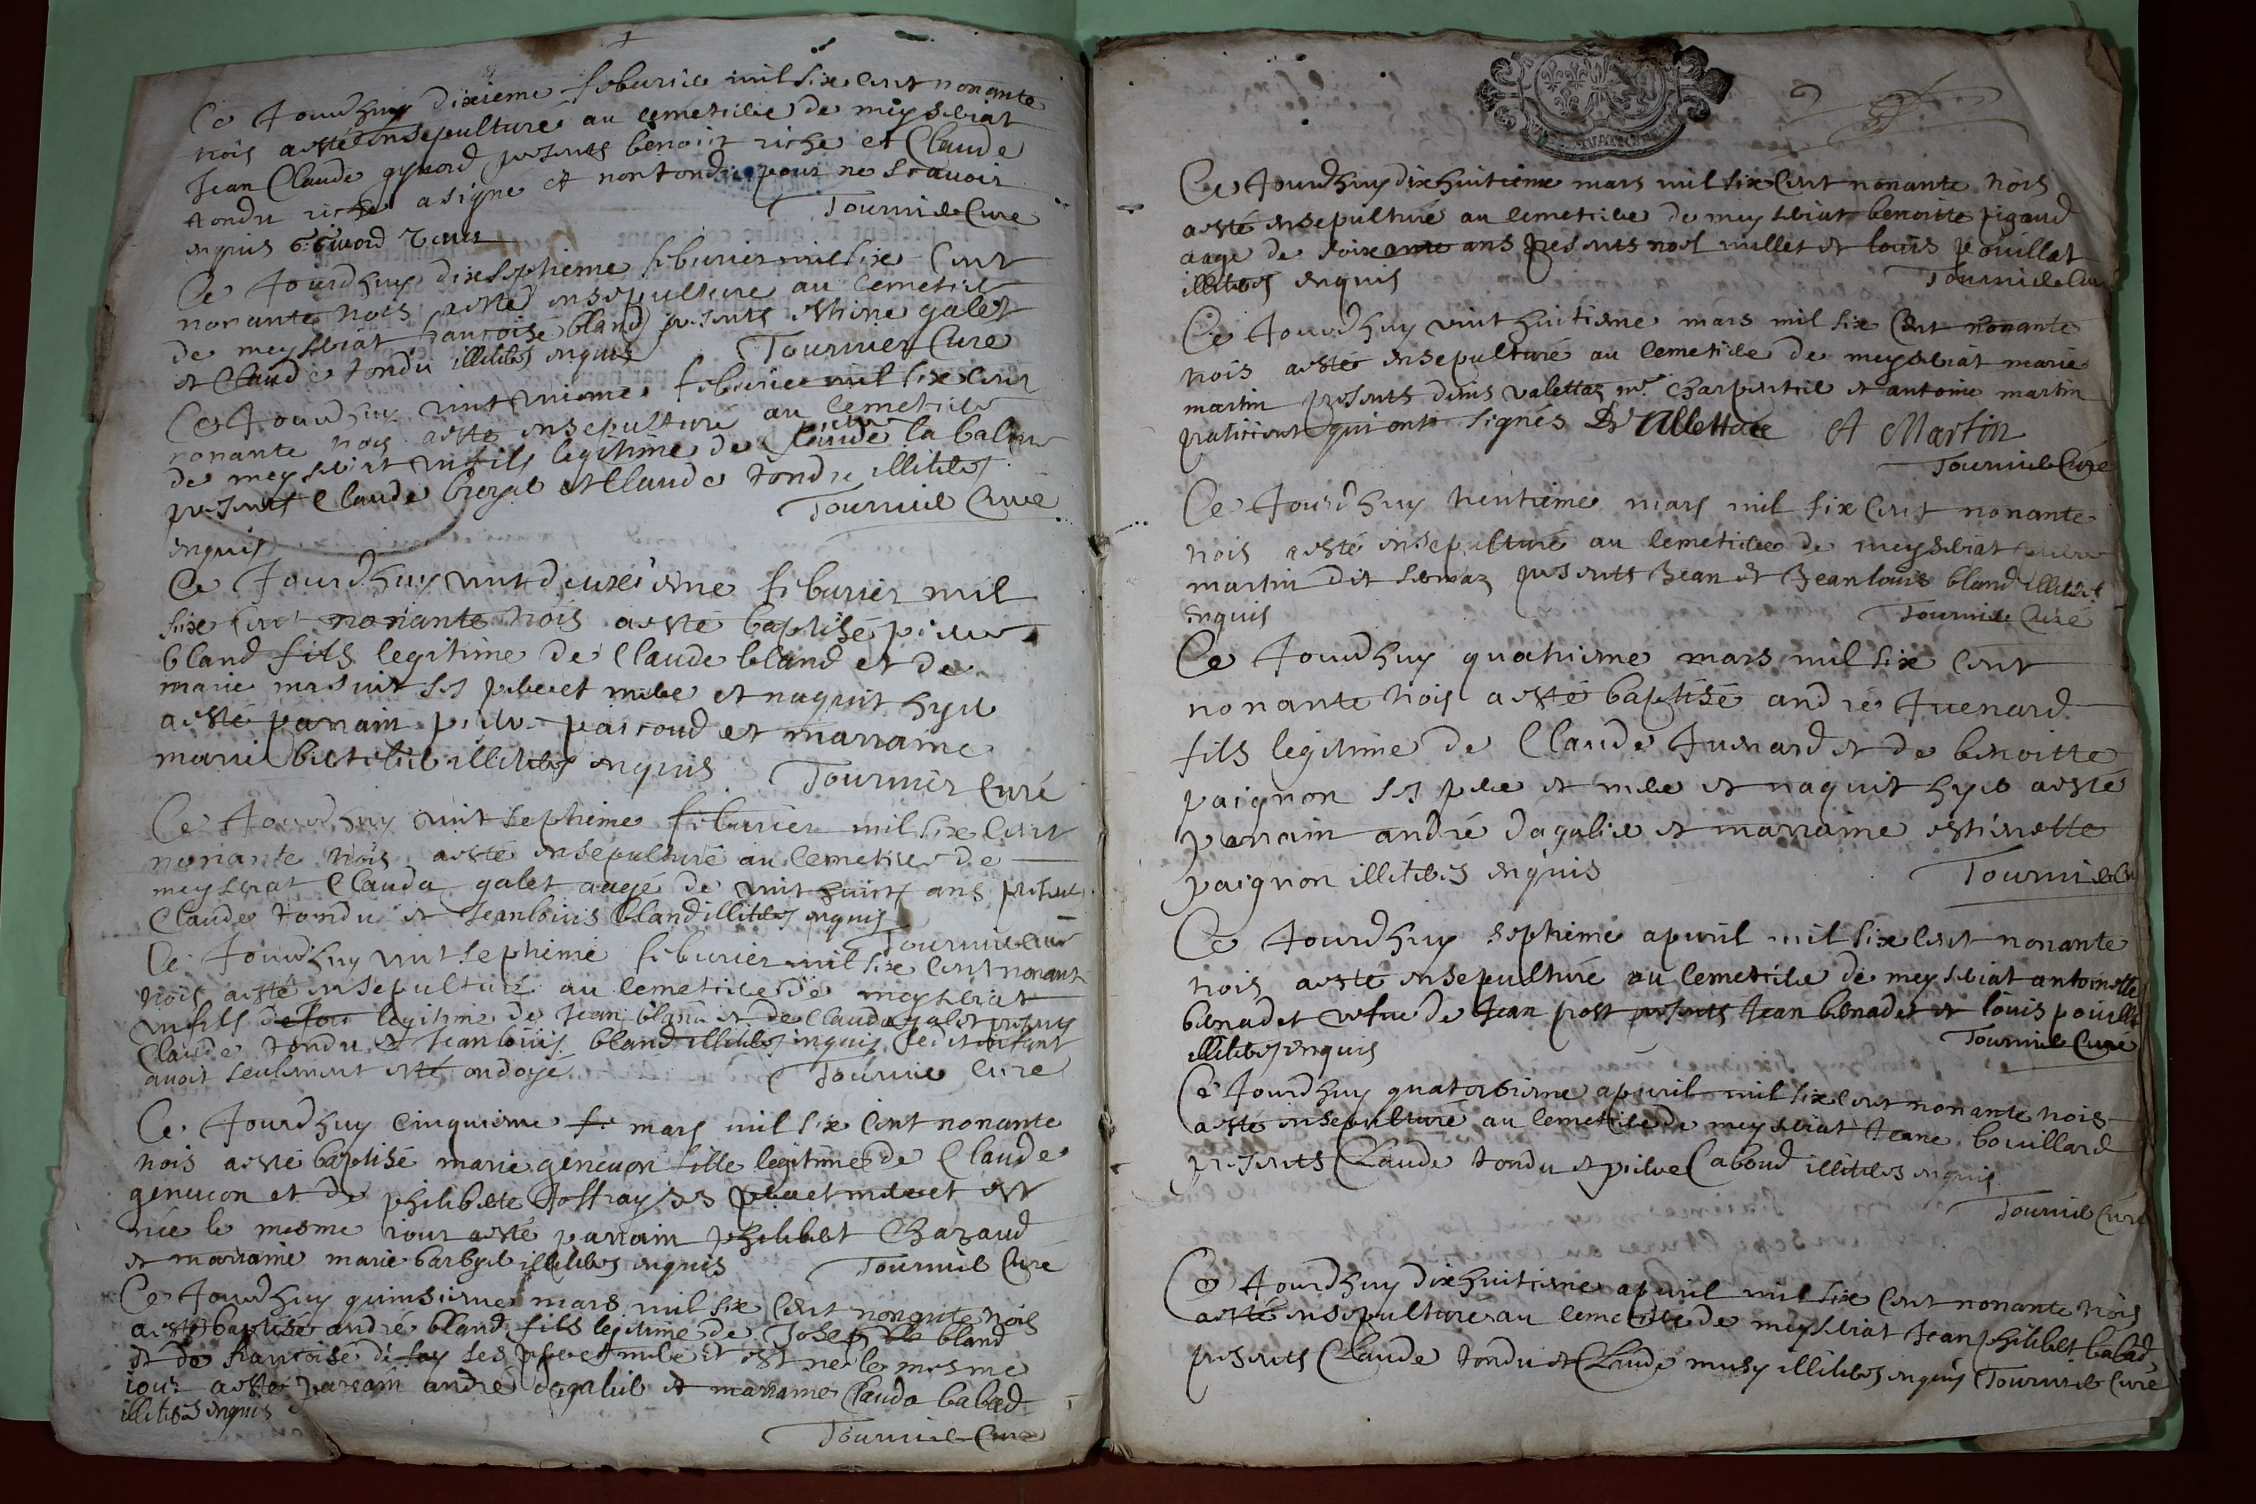 Ce Jourd'huy dixieme feburier mil six cent nonante
trois a esté ensepulturé au cemetiere de meyseriat
Jean Claude presents benoit riche et Claude
tondu riche a signé et non tondu pour ne scavoir
enquis Tournier Curé
Ce Jourd'huy dixseptieme feburier mil six cent
nonante trois a esté ensepulturé au cemetiere
de meyseriat francoise bland presents estiene galet
et Claude tondu illiteres enquis Tournier Curé
Ce Jourd'huy vint unieme feburier mil six cent
nonante trois a esté ensepulturé au cemetiere
de meyseriat un fils legitime de Claude la balme
presents Claude et Claude tondu illiteres
enquis Tournier Curé
Ce Jourd'huy vint deuxeiesme feburier mil
six cent nonante trois a esté baptisé pierre
bland fils legitime de Claude bland et de
marie ses pere et mere et naquit hyer
a esté parrain pierre et marraine
marie illiteres enquis Tournier Curé
Ce Jourd'huy vint septieme feburier mil six cent
nonante trois a esté ensepulturé au cemetiere de
meyseriat Clauda galet aagé de vint huict ans presents
Claude tondu et Jean louis bland illiteres enquis
Tournier Curé
Ce Jourd'huy vint septieme feburier mil six cent nonante
trois a esté ensepulturé au cemetiere de meyseriat
un fils legitime de Jean bland et de Clauda galet presents
Claude tondu et Jean louis bland illiteres enquis ledit enfant
avoit seulement esté ondoyé Tournier Curé
Ce Jourd'huy cinquieme mars mil six cent nonante
trois a esté baptisé marie genevon fille legitime de Claude
genevon et de philiberte Joffray ses pere et mere et est
née le mesme iour a esté parrain philibert Chanaud
et marraine marie barbyer illiteres enquis Tournier Curé
Ce Jourd'huy quinsieme mars mil six cent nonante trois
a esté baptisé andré bland fils legitime de Joseph bland
et de francoise ses pere et mere et est né le mesme
iour a esté parrain andré dagalier et marraine Clauda babad
illiteres enquis
Tournier Curé
Ce Jourd'huy dix huitieme mars mil six cent nonante trois
a esté ensepulturé au cemetiere de meyseriat benoitte pigaud
aage de soixante ans presents noel millet et louis pouillat
illiteres enquis Tournier Curé
Ce Jourd'huy vint huitieme mars mil six cent nonante
trois a esté ensepulturé au cemetiere de meyseriat marie
martin presents denis valettaz mre charpentier et antoine martin
praticient qui ont signés D Vallettaz A Martin
Tournier Curé
Ce Jourd'huy trentieme mars mil six cent nonante
trois a esté ensepulturé au cemetiere de meyseriat pierre
martin dit presents Jean et Jean louis bland illiteres
enquis Tournier Curé
Ce Jourd'huy quatrieme mars mil six cent
nonante trois a esté baptisé andré Juenard
fils legitime de Claude Juenard et de benoitte
paignon ses pere et mere et naquit hyer a esté
parrain andré dagalier et marraine estienette
paignon illiteres enquis Tournier Curé
Ce Jourd'huy septieme apvril mil six cent nonante
trois a esté ensepulturé au cemetiere de meyseriat antoinette
benadet vefve de Jean prost presents Jean benadet et louis pouillat
illiteres enquis Tournier Curé
Ce Jourd'huy quatorsieme apvril mil six cent nonante trois
a esté ensepulturé au cemetiere de meyseriat Jeane bouillard
presents Claude tondu et pierre Caboud illiteres enquis
Tournier Curé
Ce Jourd'huy dix huitieme apvril mil six cent nonante trois
a esté ensepulturé au cemetiere de meyseriat Jean philibert babad
presents Claude tondu et Claude musy illiteres enquis Tournier Curé